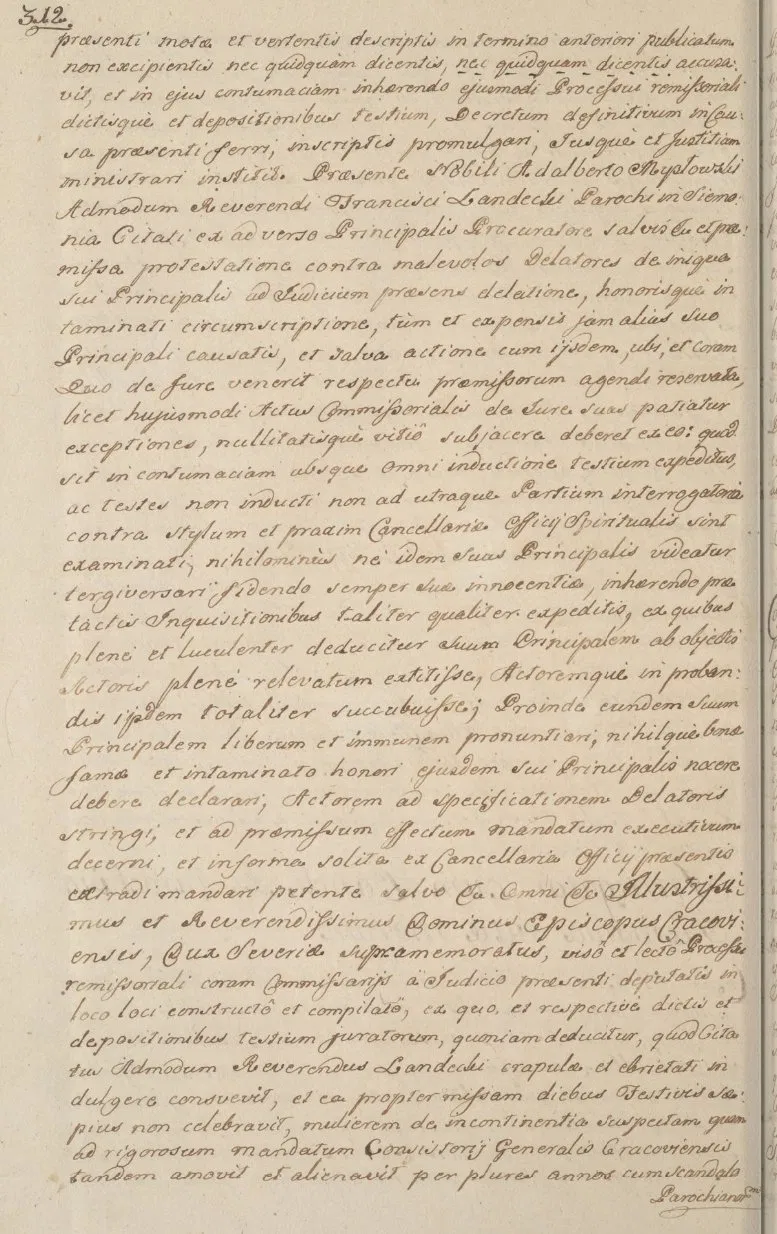 312.
præsenti motæ et vertentis descriptis in termino anteriori publicatum
non excipientis nec quidquam dicentis, nec quidquam dicentis accusa-
vit, et in ejus contumaciam inhærendo ejusmodi Processui remissoriali
dictisquè et depositionibus testium, Decretum definitivum in Cau-
sa præsenti ferri, inscriptis promulgari, Jusquè et Justitiam
ministrari institit. Præsente Nobili Adalberto Mysłowski
Admodum Reverendi Francisci Landecki Parochi in Siemo-
nia Citati ex adverso Principalis Procuratore salvis &c et præ-
missa protestatione contra malevolos Delatores de iniqua
sui Principalis ad Judicium præsens delatione, honorisquè in
taminati circumscriptione, tùm et expensis jam alias suo
Principali causatis, et salva actione cum ijsdem, ubi, et coram
Quo de Jure venerit respectu præmissorum agendi reservata,
licet hujusmodi Actus Commissorialis de Jure suas patiatur
exceptiones, nullitatisquè vitiô subjacere deberet ex eo: quod
sit in contumaciam absque omni inductione testium expeditus,
ac testes non inducti non ad utraque Partium interrogatoria
contra stylum et praxim Cancellariæ Officij Spiritualis sint
examinati, nihilominùs nè idem suus Principalis videatur
tergiversari fidendo semper suæ innocentiæ, inhærendo præ
tactis Inquisitionibus taliter qualiter expeditis, ex quibus
plenè et luculenter deducitur suum Principalem ab objectis
Actoris plenè relevatum extitisse, Actoremquè in proban-
dis ijsdem totaliter succubuisse; Proinde eundem suum
Principalem liberum et immunem pronuntiari, nihilquè bonæ
famæ et intaminato honori ejusdem sui Principalis nocere
debere declarari, Actorem ad specificationem Delatoris
stringi, et ad præmissum effectum mandatum executivum
decerni, et in forma solita ex Cancellaria Officij præsentis
extradi mandari petente salvo &c Omni &c Illustrissi-
mus et Reverendissimus Dominus Episcopus Cracovi-
ensis, Dux Severiæ supramemoratus, visô et lectô Processu
remissoriali coram Commissarijs à Judicio præsenti deputatis in
loco loci constructô et compilatô, ex quo, et respectivè dictis et
depositionibus testium juratorum, quoniam deducitur, quod Cita
tus Admodum Reverendus Landecki crapulæ et ebrietati in
dulgere consvevit, et ea propter missam diebus Festivis sæ-
pius non celebravit, mulierem de incontinentia suspectam quam
ad rigorosum mandatum Consistorij Generalis Cracoviensis
tandem amovit et alienavit per plures annos cum scandalo
Parochianorum